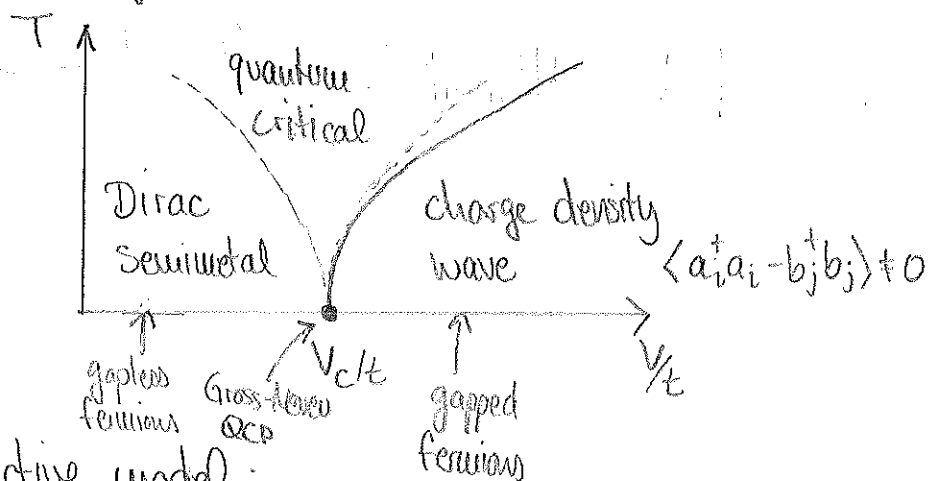 T
quantum
critical
Dirac
semimetal
charge density
wave
⟨a_i^† a_i - b_j^† b_j⟩ ≠ 0
V_c/t
V/t
gapless
fermions
Gross-Neveu
QCP
gapped
fermions
model: